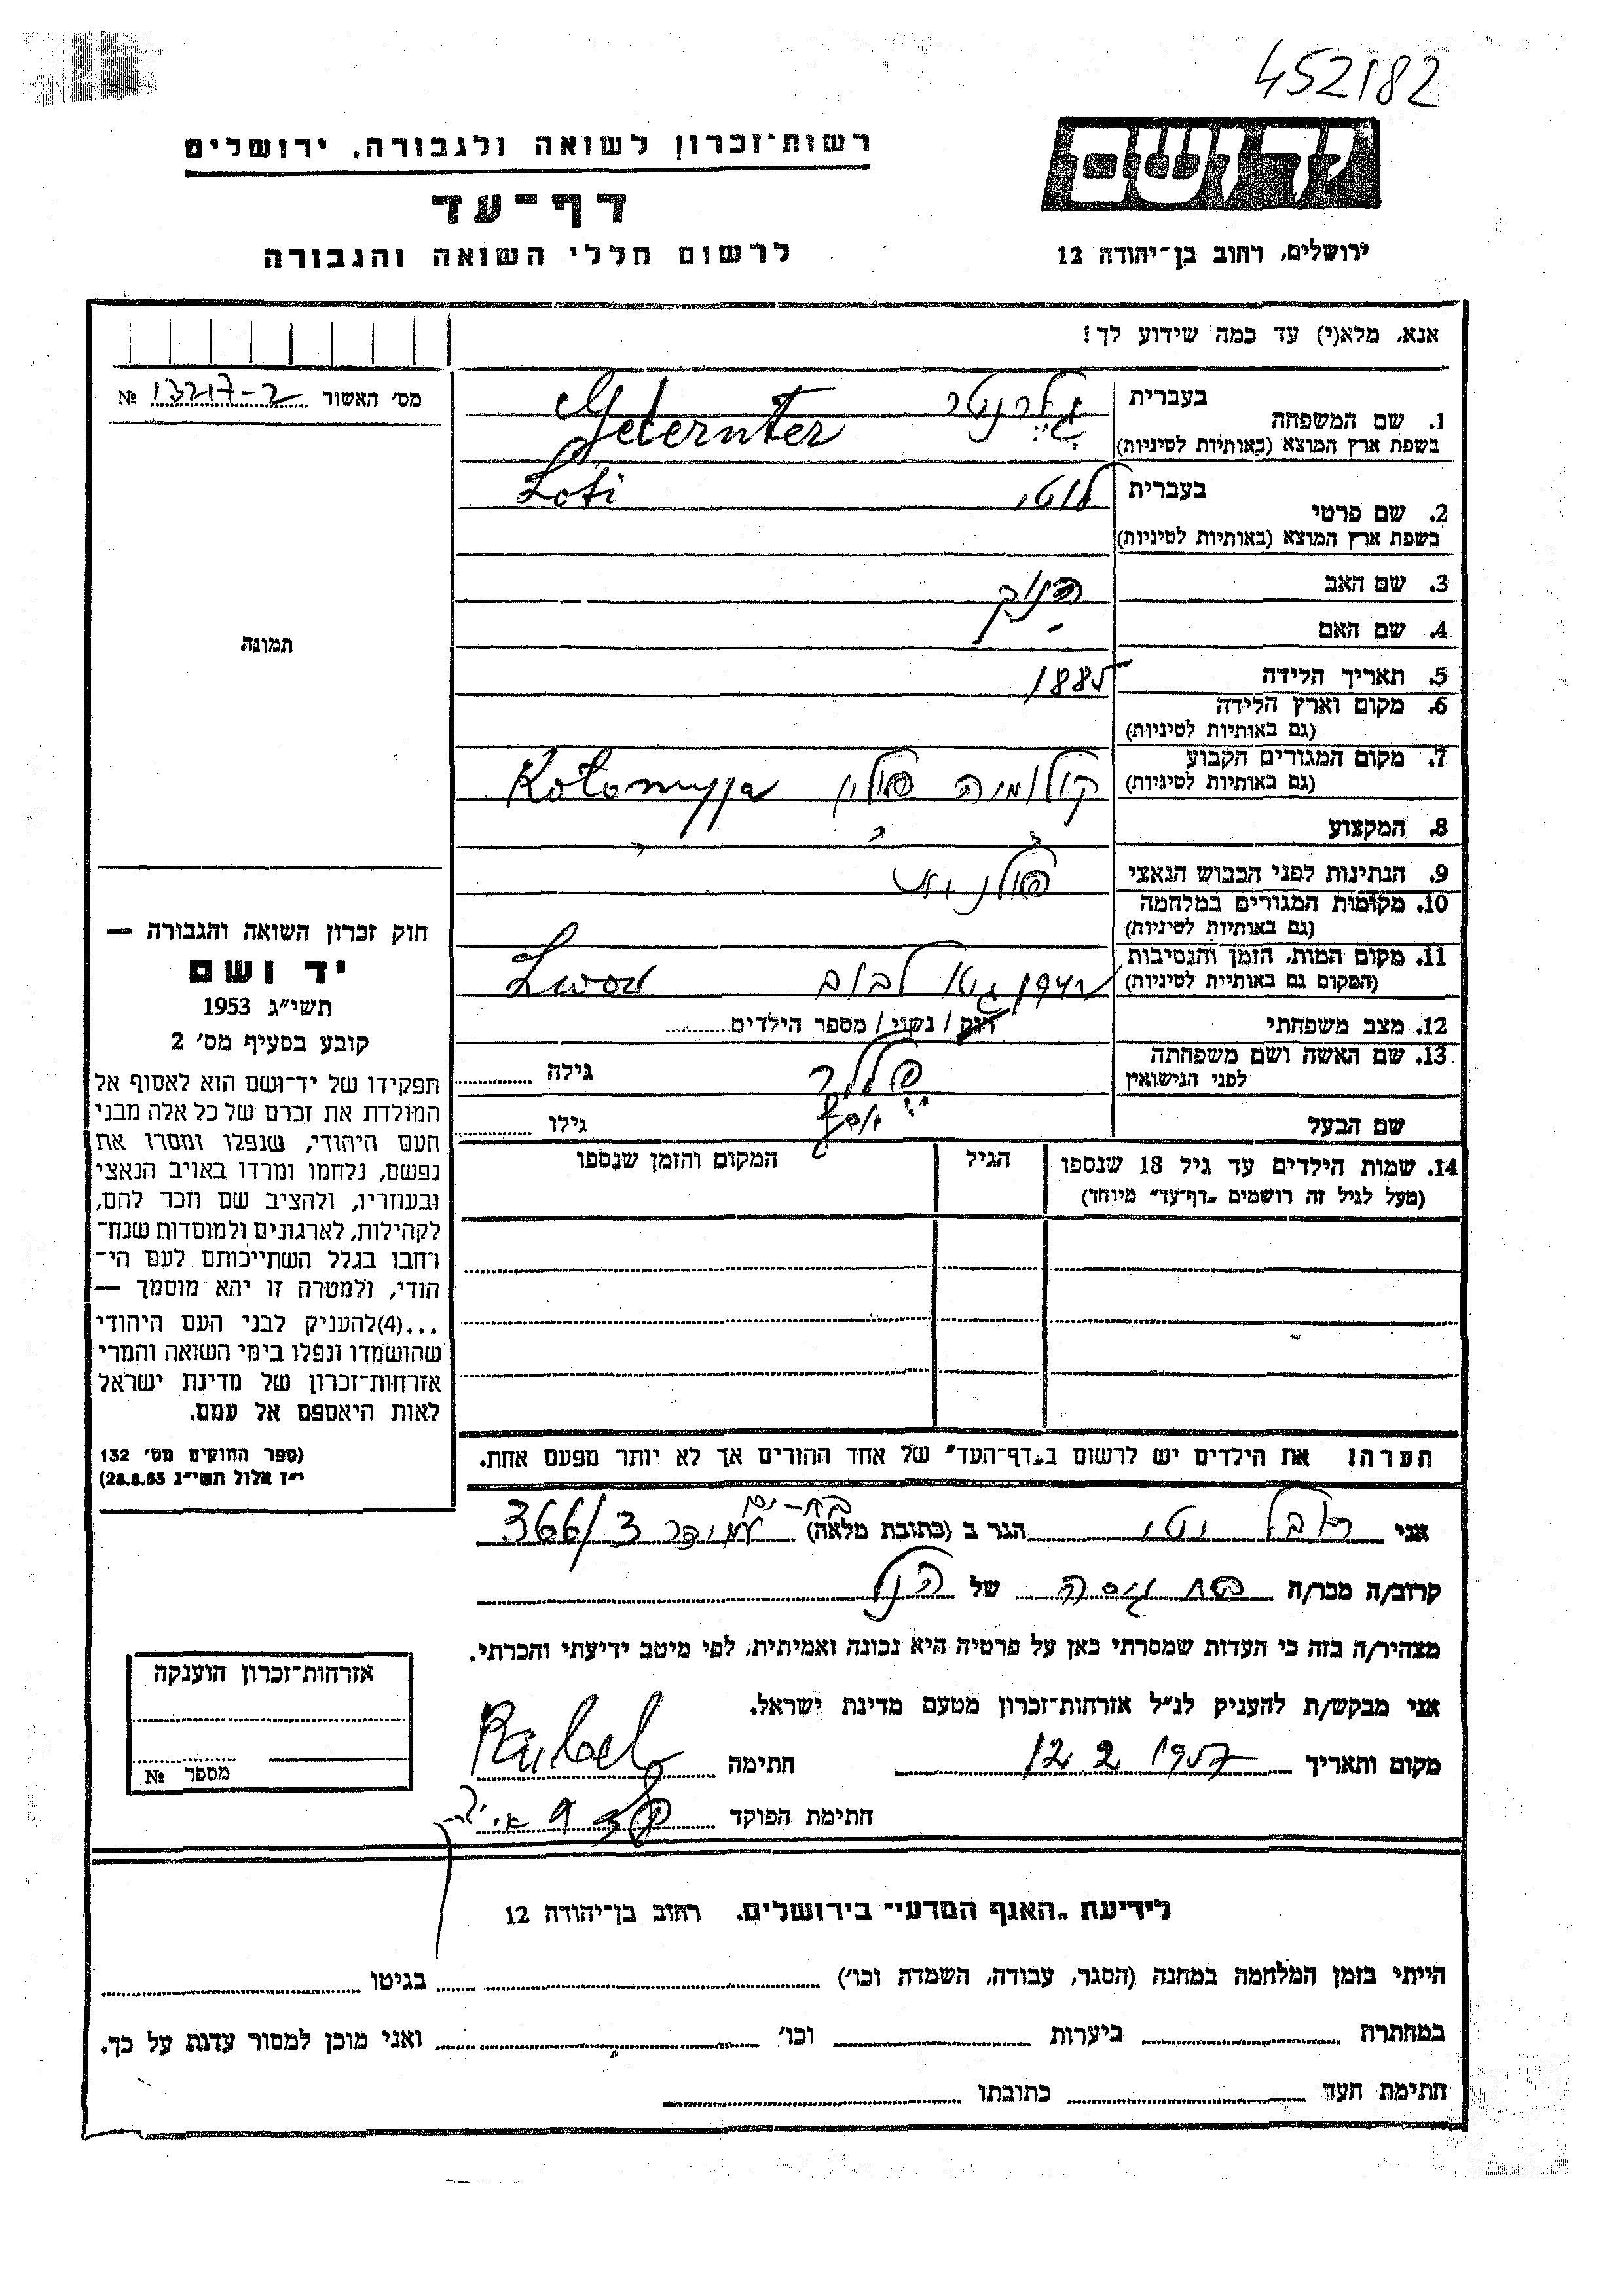 452182
יד ושם
רשות־זכרון לשואה ולגבורה, ירושלים
דף־עד
לרשום חללי השואה והגבורה
ירושלים, רחוב בן־יהודה 12
אנא, מלא(י) עד כמה שידוע לך!
מס׳ האשור 13217-2 №
תמונה
בעברית
1. שם המשפחה גלרנטר Gelernter
בשפת ארץ המוצא (באותיות לטיניות)
בעברית
2. שם פרטי לוטי Loti
בשפת ארץ המוצא (באותיות לטיניות)
3. שם האב
4. שם האם -
5. תאריך הלידה 1885
6. מקום וארץ הלידה
(גם באותיות לטיניות)
7. מקום המגורים הקבוע קולומיה פולין Kołomyja
(גם באותיות לטיניות)
8. המקצוע
9. הנתינות לפני הכבוש הנאצי פולנית
10. מקומות המגורים במלחמה
(גם באותיות לטיניות)
11. מקום המות, הזמן והנסיבות גטו לבוב Lwow
(המקום גם באותיות לטיניות)
12. מצב משפחתי רוק / נשוי / מספר הילדים
13. שם האשה ושם משפחתה גילה
לפני הנישואין
שם הבעל יוסף גילו
14. שמות הילדים עד גיל 18 שנספו הגיל המקום והזמן שנספו
(מעל לגיל זה רושמים „דף־עד” מיוחד)
הערה! את הילדים יש לרשום ב„דף־העד” של אחד ההורים אך לא יותר מפעם אחת.
חוק זכרון השואה והגבורה —
יד ושם
תשי״ג 1953
קובע בסעיף מס׳ 2
תפקידו של יד־ושם הוא לאסוף אל
המולדת את זכרם של כל אלה מבני
העם היהודי, שנפלו ומסרו את
נפשם, נלחמו ומרדו באויב הנאצי
ובעוזריו, ולהציב שם וזכר להם,
לקהילות, לארגונים ולמוסדות שנח־
רחבו בגלל השתייכותם לעם הי־
הודי, ולמטרה זו יהא מוסמך —
...(4)להעניק לבני העם היהודי
שהושמדו ונפלו בימי השואה והמרי
אזרחות־זכרון של מדינת ישראל
לאות היאספם אל עמם.
(ספר החוקים מס׳ 132
י״ז אלול תשי״ג 28.8.53)
בת-ים
אני רובל יטי הגר ב (כתובת מלאה) עמידר 366/3
קרוב/ה מכר/ה בת גיסה של הנ״ל
מצהיר/ה בזה כי העדות שמסרתי כאן על פרטיה היא נכונה ואמיתית, לפי מיטב ידיעתי והכרתי.
אני מבקש/ת להעניק לנ״ל אזרחות־זכרון מטעם מדינת ישראל.
מקום ותאריך 12 2 1957 חתימה Rubel
חתימת הפוקד
אזרחות־זכרון הוענקה
מספר №
לידיעת „האגף המדעי” בירושלים. רחוב בן־יהודה 12
הייתי בזמן המלחמה במחנה (הסגר, עבודה, השמדה וכו׳) בגיטו
במחתרת ביערות וכו׳ ואני מוכן למסור עדות על כך.
חתימת העד כתובתו